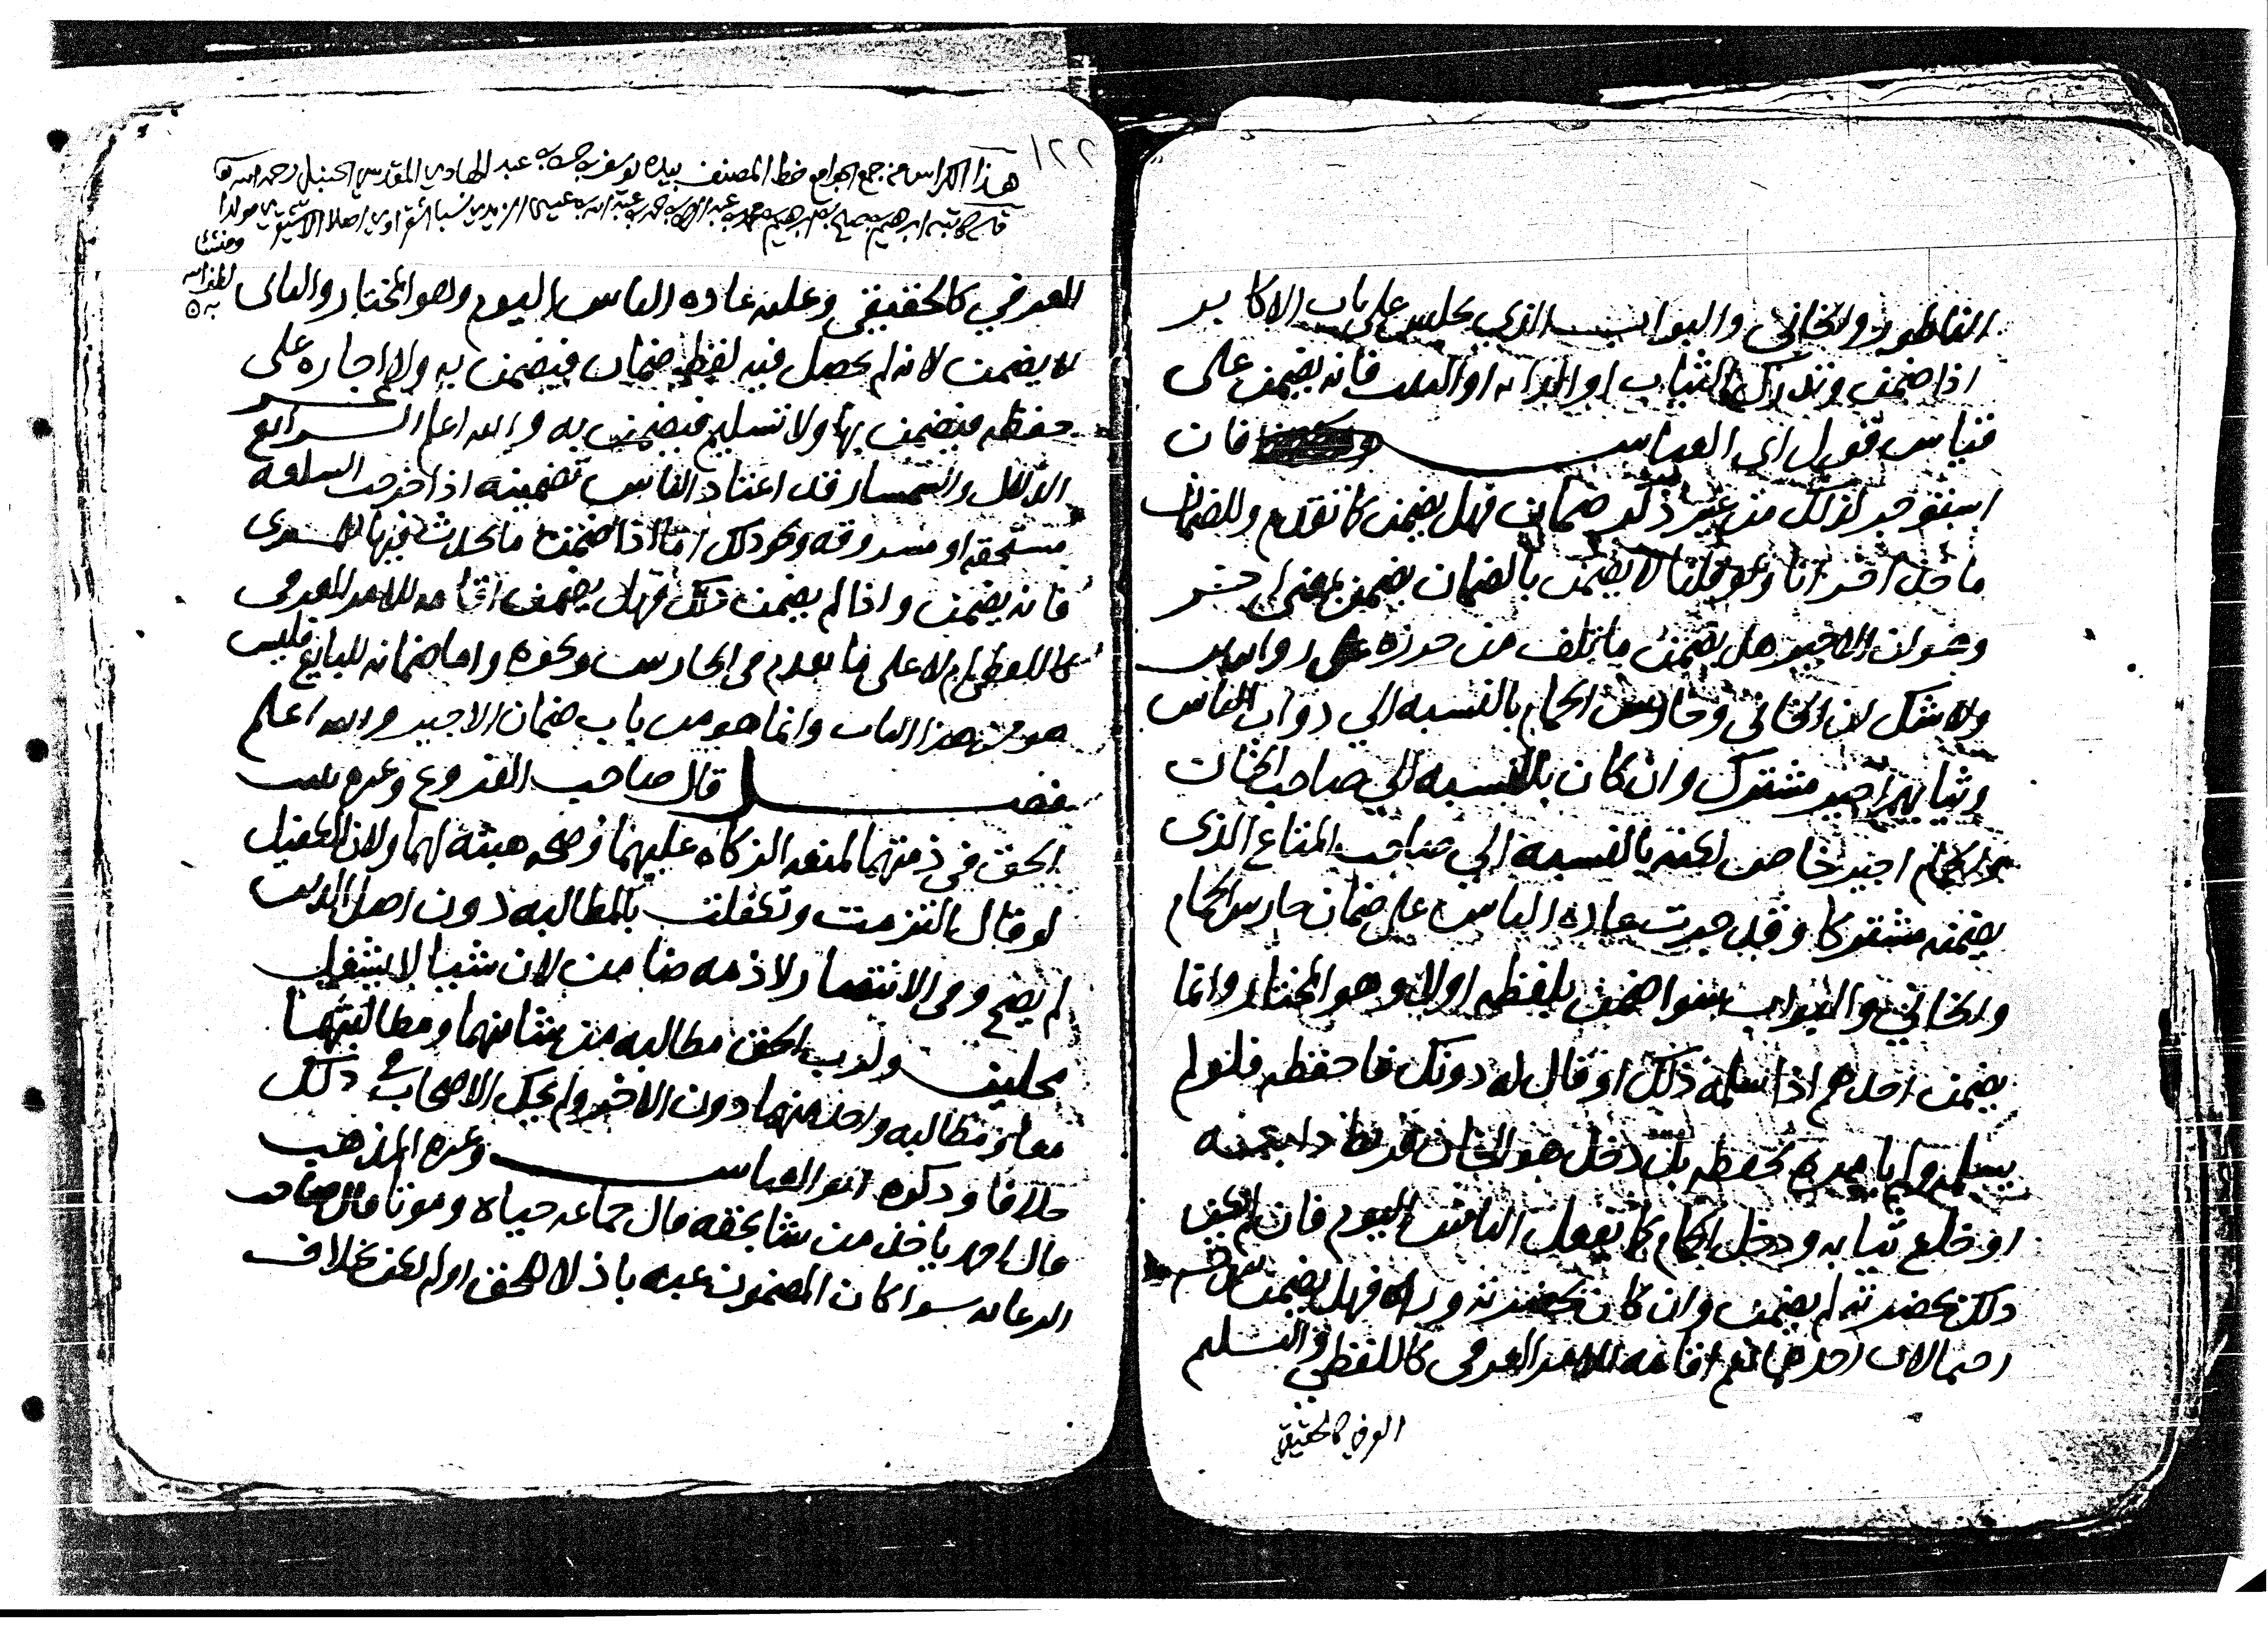 الناطور والخاني والبواب الذي يجلس على باب الاكابر
اذا ضمن وتدرك الثياب او الدابه او البيت فانه يضمن على
قياس قول ابي العباس فان
استؤجر لذلك من غير ذكر ضمان فهل يضمن كما تقدم وللضمان
ماخذ اخر انا ولو قلنا لا يضمن بالضمان يضمن لمعنى اخر
وهو ان الاجير هل يضمن ما يتلف من حرزه على روايتين
ولا شك ان الخاني وحارس الحمام بالنسبه الي دواب الناس
وثيابهم اجير مشترك وان كان بالنسبه الي صاحب الخان
والحمام اجير خاص لكنه بالنسبه الي صاحب المتاع الذي
يضمنه مشتركا وقد جرت عاده الناس على ضمان حارس الحمام
والخاني والبواب سوا ضمن بلفظه اولا وهو المختار وانما
يضمن احدهم اذا سلمه ذلك او قال له دونك فاحفظه فلو لم
يسلمه ولم يامره بحفظه بل دخل هو الخان فربط دابته
او خلع ثيابه ودخل الحمام كما يفعل الناس اليوم فان لم يكن
ذلك بحضرته لم يضمن وان كان بحضرته وراه فهل يضمن
احتمالان احدهما نعم اقامه للامر العرفي كاللفظي والتسليم
العرفي كالحقيقي
١٢٢
هذا الكراس من جمع الجوامع خط المصنف بيده يوسف بن حسن بن عبد الهادي المقدسي الحنبلي رحمه الله
قاله كاتبه ابراهيم بن صالح بن ابراهيم بن محمد بن عبد الرحمن بن حمد بن عبد الله بن عيسى نسبا الشقراوي اصلا الاشيقري مولدا
ومنشئا
لطف الله
به
العرفي كالحقيقي وعليه عاده الناس اليوم وهو المختار والثاني
لا يضمن لانه لم يحصل فيه لفظ ضمان فيضمن به ولا اجاره على
حفظه فيضمن بها ولا تسليم فيضمن به والله اعلم الرابع عشر
الدلال والسمسار قد اعتاد الناس تضمينه اذا خرجت السلعه
مستحقه او مسروقه ونحو ذلك اما اذا ضمن ما يحدث فيها للمشتري
فانه يضمن واذا لم يضمن ذلك فهل يضمن اقامه للامر العرفي
كاللفظي ام لا على ما تقدم في الحارس ونحوه واما ضمانه للبايع فليس
هو من هذا الباب وانما هو من باب ضمان الاجير والله اعلم
فصل قال صاحب الفروع وغيره يثبت
الحق في ذمتهما لمنعه الزكاه عليهما وصحه هبته لهما ولان الكفيل
لو قال التزمت وتكفلت بالمطالبه دون اصل الدين
لم يصح وفي الانتصار لا ذمه ضامن لان شيا لا يشغل
محلين ولرب الحق مطالبه من شا منهما ومطالبتهما
معا ومطالبه واحد منهما دون الاخر ولم يحك الاصحاب في ذلك
خلافا وذكره ابو العباس وغيره المذهب
قال احمد ياخذ من شا بحقه قال جماعه حياه وموتا قال صاحب
الرعايه سوا كان المضمون عنه باذلا للحق اولم يكن بخلاف